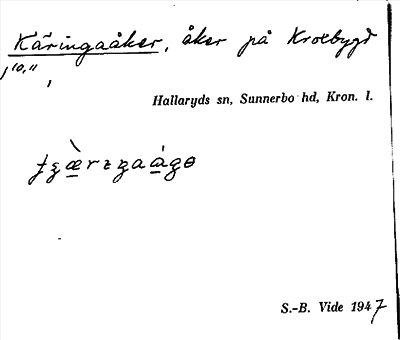 Käringaåker, åker på Kroxbygd
j"10,"
Hallaryds sn, Sunnerbo hd, Kron. l.
S.-B. Vide 1947